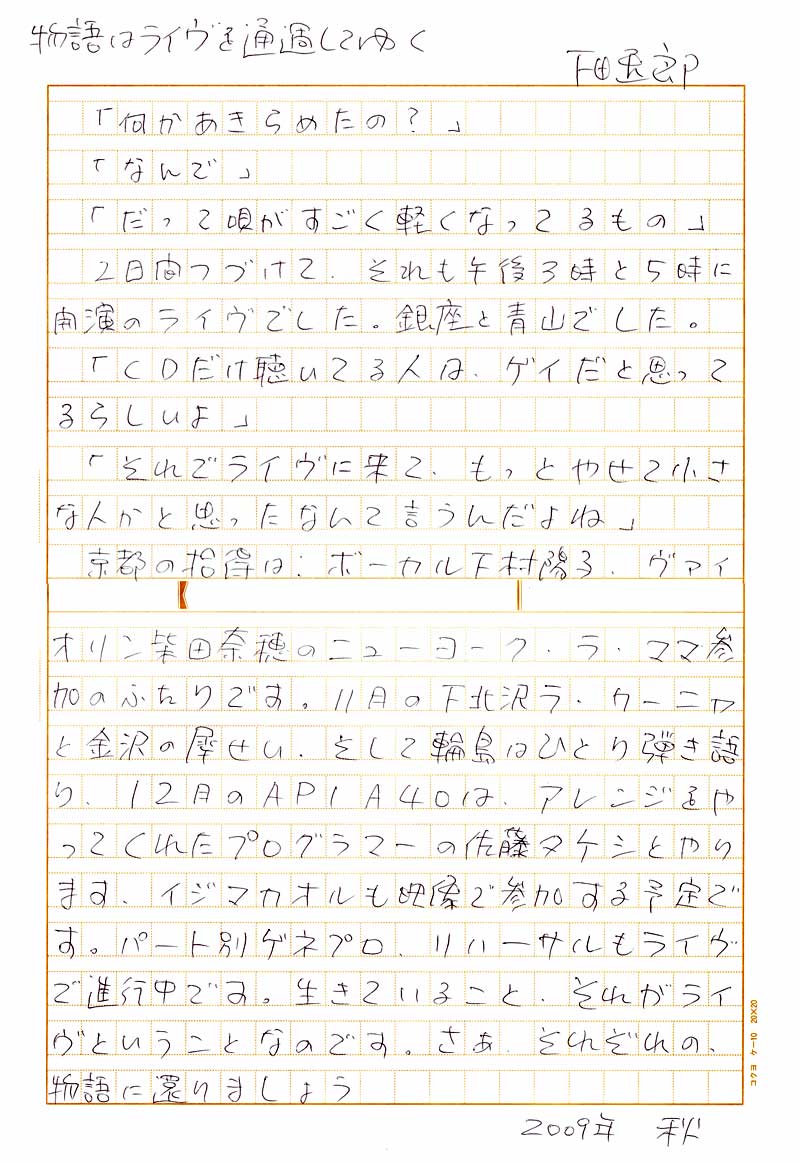 物語はライヴを通過してゆく
下田逸郎
「何かあきらめたの?」
「なんで」
「だって唄がすごく軽くなってるもの」
2日間つづけて、それも午後3時と5時に
開演のライヴでした。銀座と青山でした。
「CDだけ聴いてる人は、ゲイだと思って
るらしいよ」
「それでライヴに来て、もっとやせて小さ
な人かと思ったなんて言うんだよね」
京都の拾得は、ボーカル下村陽子、ヴァイ
オリン柴田奈穂のニューヨーク・ラ・ママ参
加のふたりです。11月の下北沢ラ・カーニャ
と金沢の犀せい、そして輪島はひとり弾き語
り、12月のAPIA40は、アレンジをや
ってくれたプログラマーの佐藤タケシとやり
ます、イジマカオルも映像で参加する予定で
す。パート別ゲネプロ、リハーサルもライヴ
で進行中です。生きていること、それがライ
ヴということなのです。さあ、それぞれの、
物語に還りましょう
2009年 秋
コクヨ ケー10 20×20